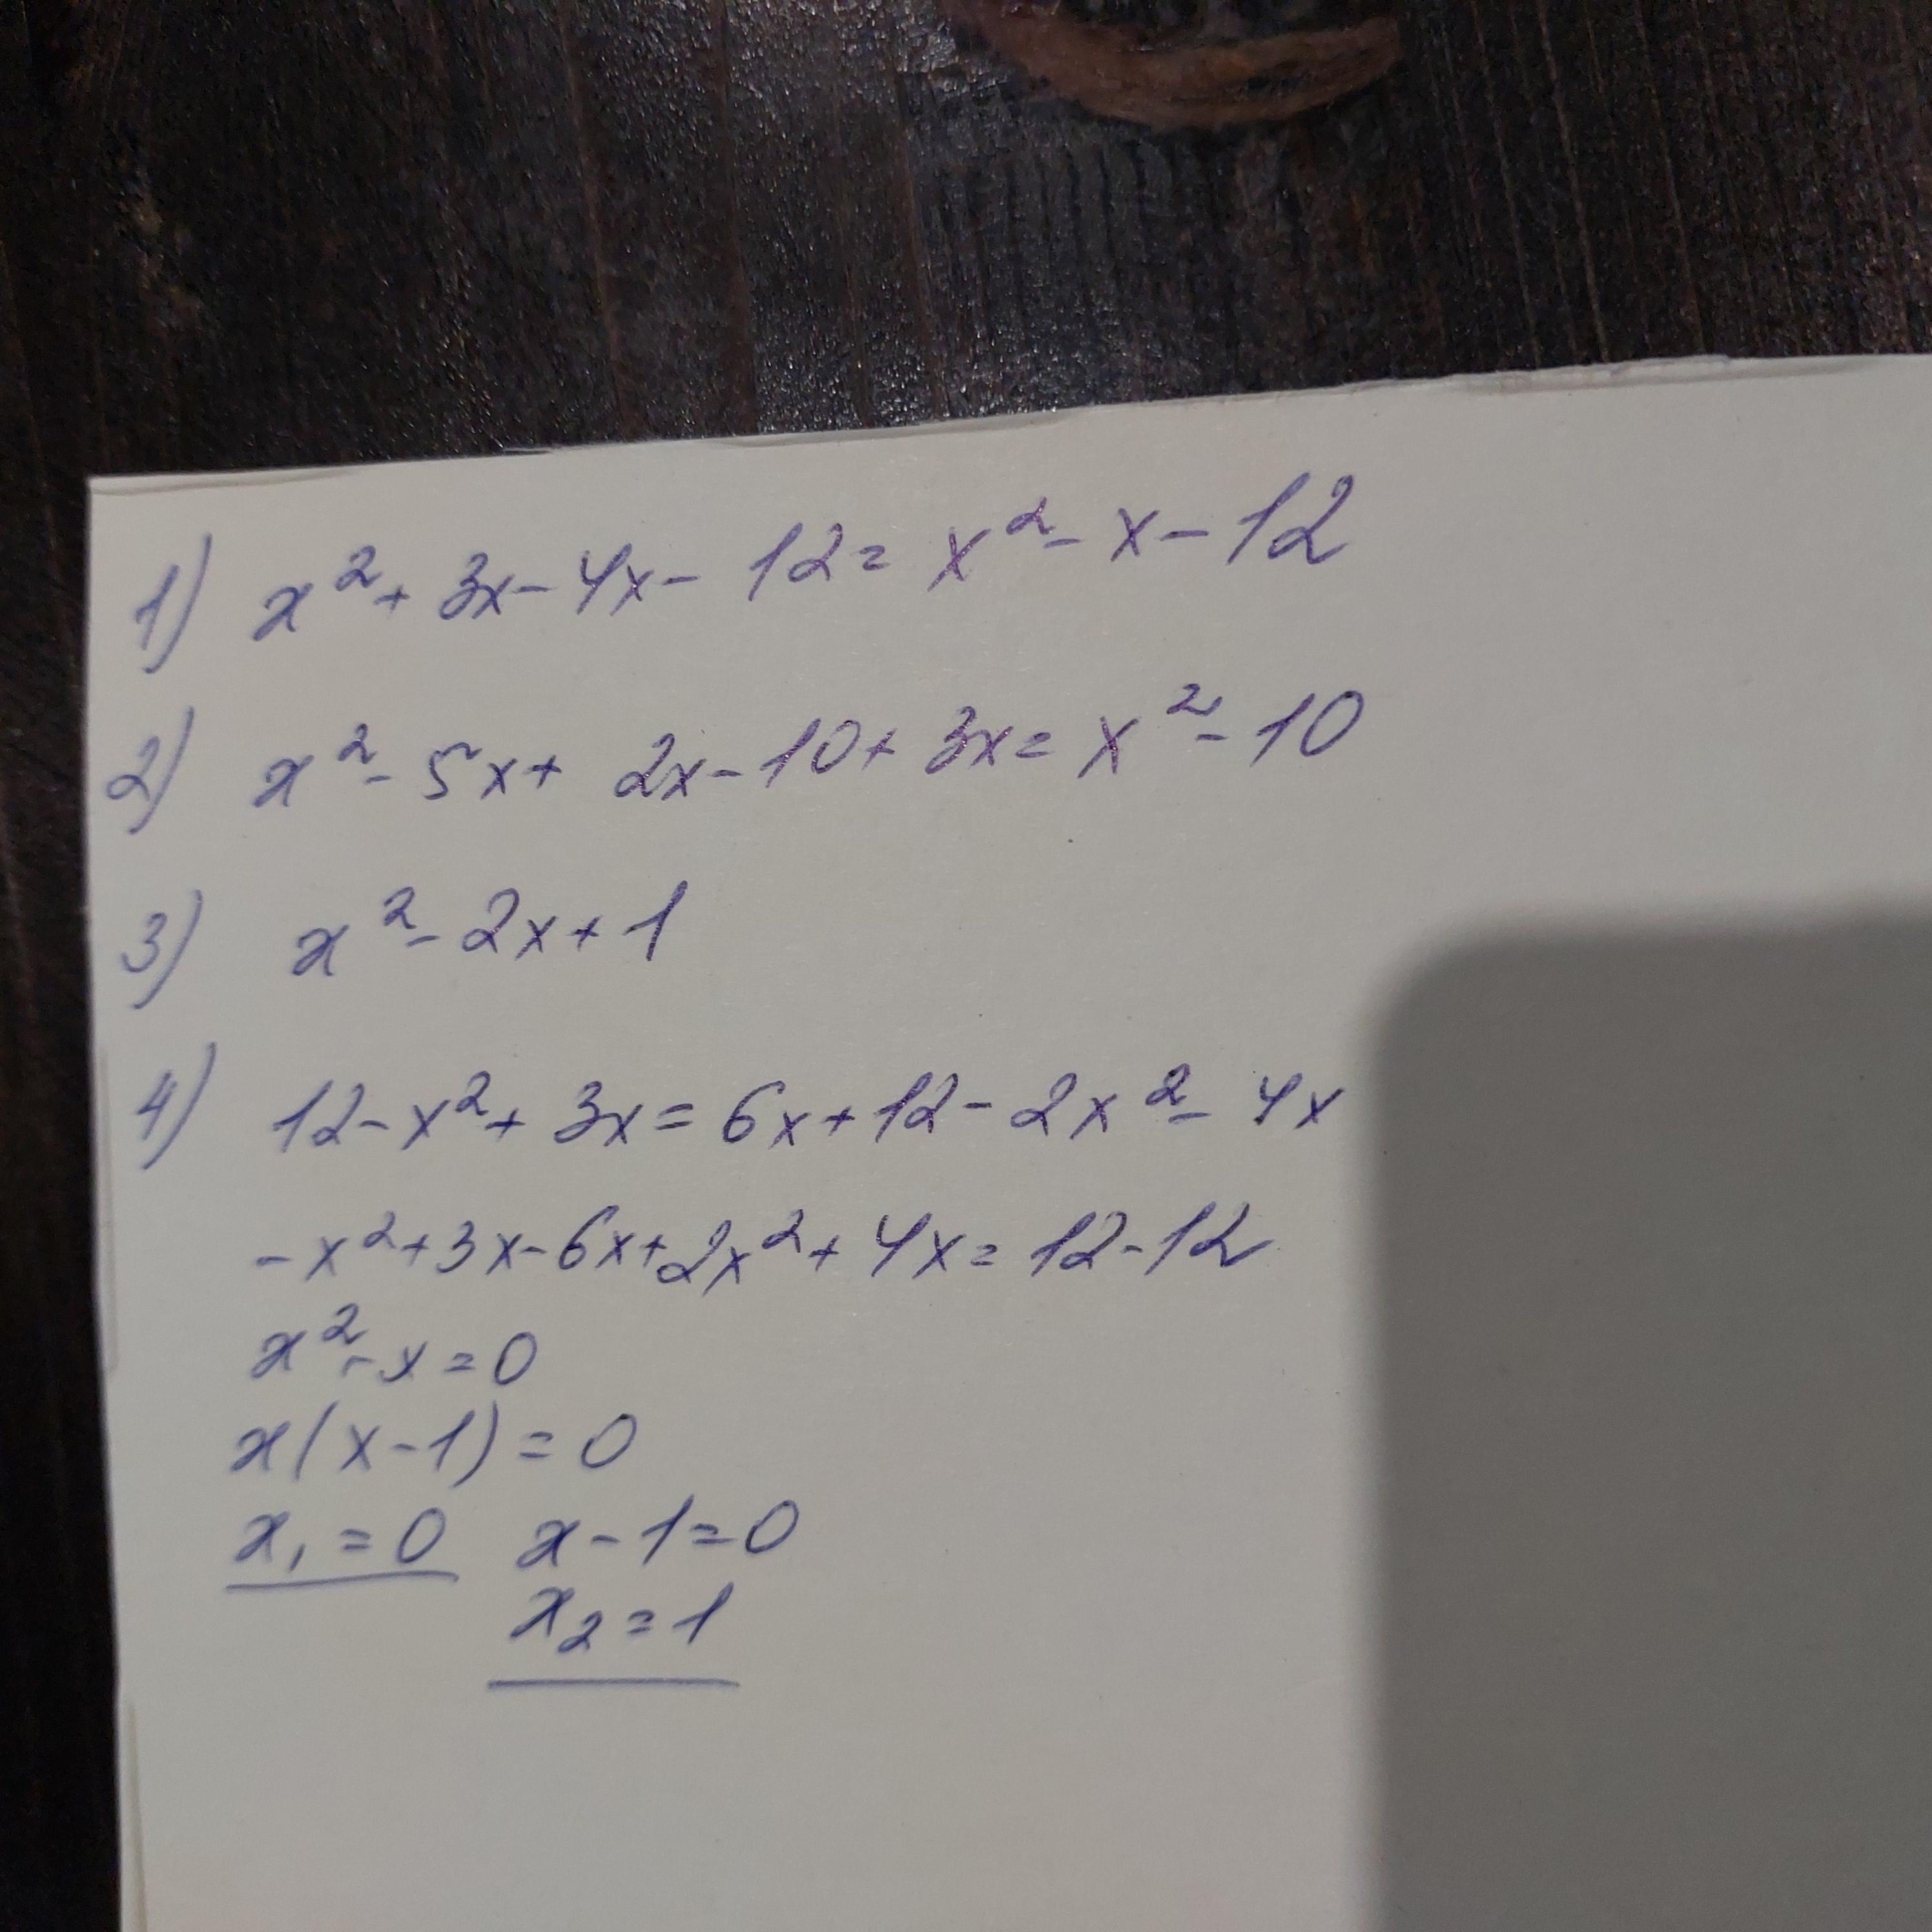 1) x² + 3x - 4x - 12 = x² - x - 12
2) x² - 5x + 2x - 10 + 3x = x² - 10
3) x² - 2x + 1
4) 12 - x² + 3x = 6x + 12 - 2x² - 4x
-x² + 3x - 6x + 2x² + 4x = 12 - 12
x² - x = 0
x(x - 1) = 0
x₁ = 0 x - 1 = 0
x₂ = 1